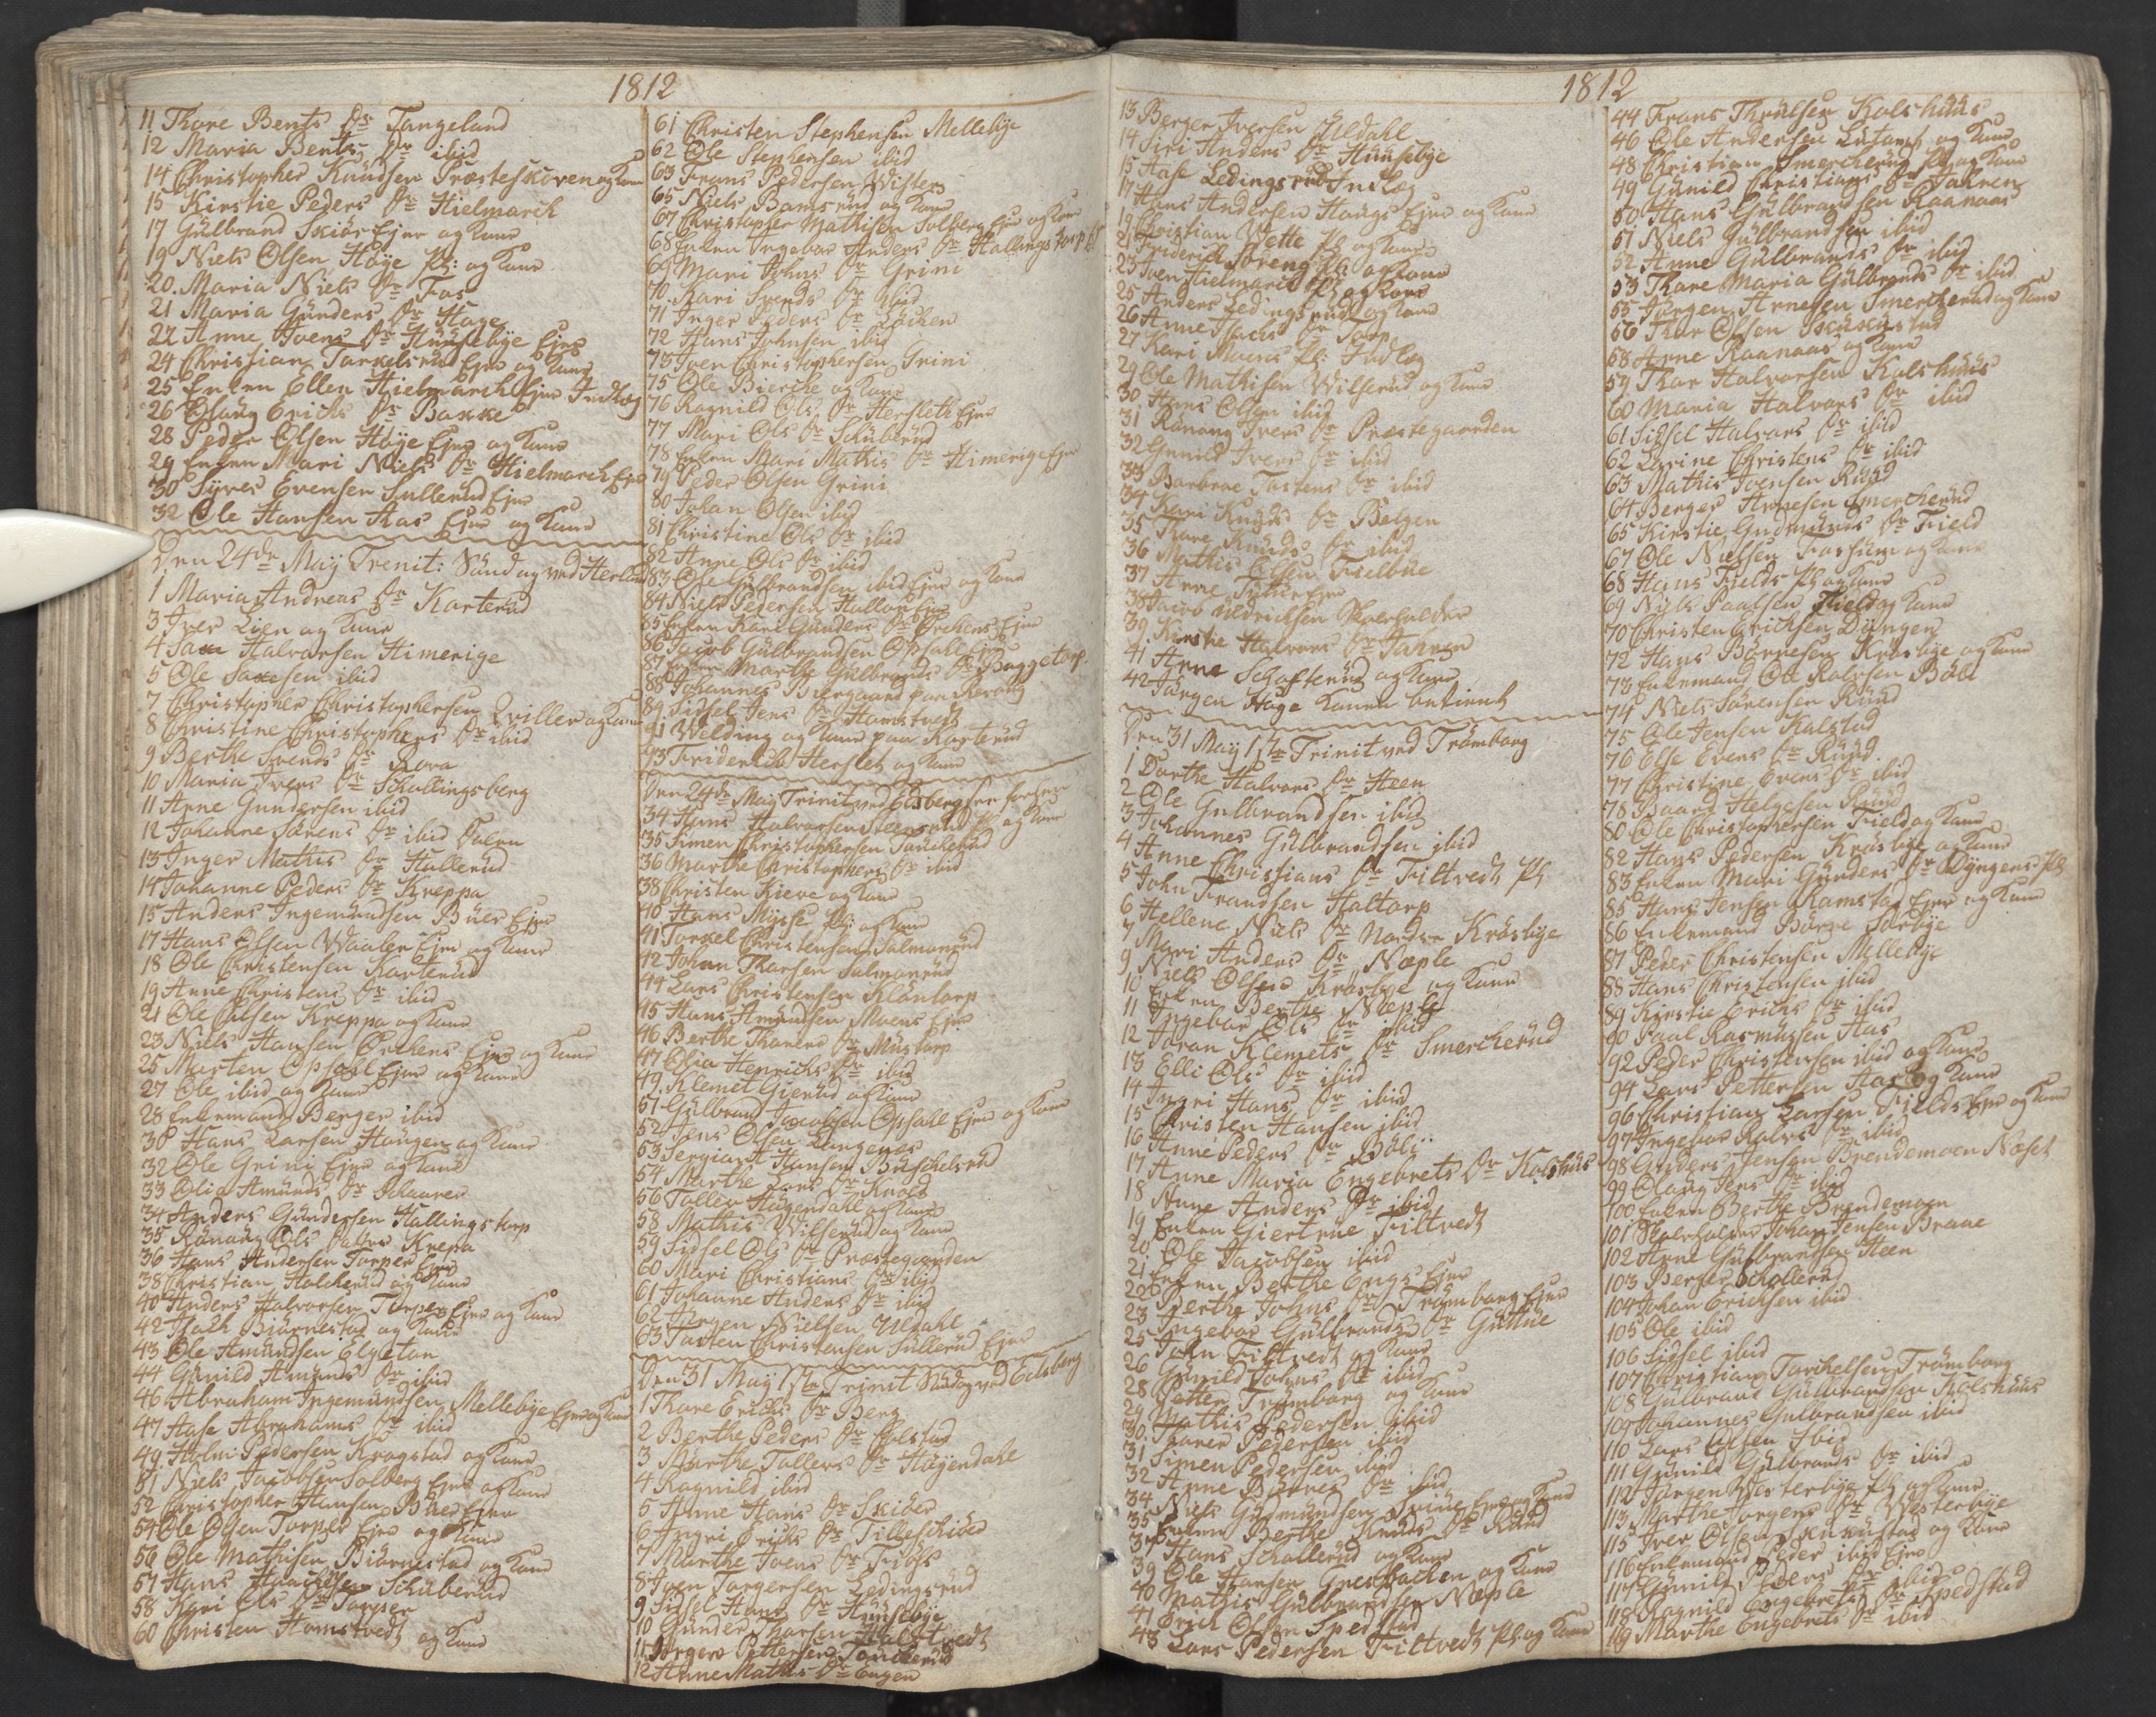 1812
11 Thore Bents Dr Tangeland
12 Maria Bents Dr ibid
14 Christopher Knudsen Træsteskoven og Kone
15 Kirstie Peders Dr Hielmarch
17 Gülbrand Skiör Ejer og Kone
19 Niels Olsen Höye Pl: og Kone
20. Maria Niels Dr Fos
21 Maria Günders Dr Hage
22 Anne Ivens Dr Hünsebye Ejer
24 Christian Torkelsrud Ejer og Kone
25 Enken Ellen Hielmarch Ejer Indlæg
26 Olaug Erichs Dr Bakke
28 Peder Olsen Höye Ejer og Kone
29 Enken Mari Niels Dr Hielmarch Ejer
30 Syver Evensen Sullerud Ejer
32 Ole Hansen Aas Ejer og Kone
Den 24de May Trenit: Söndag ved Herland
1 Maria Andreas Dr Karterud
3 Iver Lien og Kone
4 Saxe Halvorsen Himerige
5 Ole Saxesen ibid
7 Christopher Christophersen Qviller og Kone
8 Christine Christophers Dr ibid
9 Berthe Svends Dr Kova
10 Maria Ivers Dr Schallingsberg
11 Arne Gundersen ibid
12 Johanne Sörens Dr ibid
13 Inger Mathis Dr Hallerud
14 Johanne Peders Dr Kreppa
15 Anders Ingemundsen Büer Ejer
17 Hans Olsen Waaler Ejer og Kone
18 Ole Christensen Karterud
19 Anne Christens Dr ibid
21 Ole Olsen Kreppa og Kone
23 Niels Hansen Örchens Ejer og Kone
25 Morten Opsahl Ejer og Kone
27 Ole ibid og Kone
28 Enkemand Berger ibid
30 Hans Larsen Haugen og Kone
32 Ole Grini Ejer og Kone
33 Olia Amunds Dr Schaarer
34 Anders Gündersen Hallingstorp
35 Ranaug Ols Datter Krepa
36 Hans Andersen Torper Ejer
38 Christian Holcherud og Kone
40 Anders Halvorsen Torper Ejer og Kone
42 Isach Biörnestad og Kone
43 Ole Amundsen Elgetan
44 Günild Amunds Dr ibid
46 Abraham Ingemundsen Mellebye Ejer og Kone
47 Aase Abrahams Dr ibid
49 Holm Pedersen Kragstad og Kone
51 Niels Jacobsen Solberg Ejer og Kone
52 Christopher Hansen Büer Ejer
54 Ole Olsen Torper Ejer og Kone
56 Ole Mathisen Biörnestad og Kone
57 Hans Schuberud
58 Kari Ols Dr Torper
60 Christen Homstvedt og Kone
61 Christen Stephensen Mellebye
62 Ole Stephensen ibid
63 Frans Pedersen Wister
65 Niels Bamsrud og Kone
67 Christopher Mathisen Solberg Ejer og Kone
68 Enken Ingebor Anders Dr Hallingstorp
69 Mari Johns Dr Grini
70. Kari Svends Dr ibid
71 Inger Peders Dr Löchen
72 Hans Johnsen ibid
73 Iver Christophersen Grini
75 Ole Bierche og Kone
76 Ragnild Ols Dr Hersleth Ejer
77 Mari Ols Dr Schuberud
78 Enken Mari Mathis Dr Himerige Ejer
79 Peder Olsen Grini
80 Johan Olsen ibid
81 Christine Ols Dr ibid
82 Anne Ols Dr ibid
83 Ole Gülbrandsen ibid Ejer og Kone
84 Niels Pedersen Hallon Ejer
85 Enken Kari Gunders Dr Örchens Ejer
86 Jacob Gülbrandsen Opsahl Ejer
87 Enken Marthe Gulbrands Dr Baggetorp
88 Johannes Biergaard paa Keraug
89 Sidsel Jens Dr Homstvedt
91 Welding og Kone paa Karterud
93 Friderich Hersleth og Kone
Den 24de May Trinit ved Eidsberg
34 Hans Halvorsen Steensrud Pl og Kone
35 Simen Christophersen Tonekerud
36 Marthe Christophers Dr ibid
38 Christen Kieve og Kone
40 Hans Mysse Pl: og Kone
41 Torkel Christensen Salmonrud
42 Johan Thorsen Salmonrud
44 Lars Christensen Klöntorp
45 Hans Amundsen Moens Ejer
46 Berthe Thorers Dr Mustorp
47 Olia Henrichs Dr ibid
49. Klemet Gierud og Kone
51 Gülbrand Jacobsen Opsahl Ejer og Kone
52 Jens Olsen Langenæs
53 Sergiant Hansen Buschelsrud
54 Marthe Lars Dr Knold
56 Tollev Haugendahl og Kone
58 Mathis Wilserud og Kone
59 Sidsel Ols Dr Præstegaarden
60 Mari Christians Dr ibid
61 Johanne Anders Dr ibid
62 Jörgen Nielsen Uldahl
63 Tosten Christensen Sullerud Ejer
Den 31 May 1ste Trinit Söndag ved Eidsberg
1 Thore Erichs Dr Berg
2 Berthe Peders Dr Holstad
3 Marthe Tollevs Dr Haugendahl
4 Ragnild ibid
5 Anne Hans Dr Skiöer
6 Ingri Erichs Dr Tilleschiöer
7 Marthe Ivers Dr Fiöss
8 Iver Torgersen Ledingsrud
9 Sidsel Hans Dr Hünsebye
10 Gunder Thorsen Holstvedt
11 Jörgen Pettersen Tonekerud
12 Anne Mathis Dr Engen
1812
13 Berger Iversen Uldahl
14 Siri Anders Dr Hunsebye
15 Aase Ledingsrud Indlæg
17 Hans Andersen Haugs Ejer og Kone
19 Christian Wette Pl og Kone
21 Friderich Soreng Pl og Kone
23 Iver Hielmarch Pl og Kone
25 Anders Ledingsrud og Kone
26 Anne Isachs Dr Torp
27 Kari Moens Pl: Indlæg
29 Ole Mathisen Wilserud og Kone
30 Hans Olsen ibid
31 Ranaug Ivers Dr Præstegaarden
32 Gunild Ivers Dr ibid
33 Barbroe Tostens Dr ibid
34 Kari Knuds Dr Belgen
35 Thore Knuds Dr ibid
36 Mathis Olsen Fielbue
37 Arne Ejer
38 Jacob Uldrichsen Skoeholder
39 Kirstie Halvors Dr Jahren
41 Arne Schofterud og Kone
42 Jörgen Hage Konen betient
Den 31 May 1ste Trinit ved Trömborg
1 Dorthe Halvors Dr Heen
2 Ole Gulbrandsen ibid
3 Johannes Gülbrandsen ibid
4 Anne Christians Dr Filtvedt Pl
5 John Frandsen Haltorp
6 Hellene Niels Dr Nordre Kråsbye
7 Mari Anders Dr Næple
9 Niels Olsen Kråsbye og Kone
10 Enken Berthe Næple
11 Ingebor Ols Dr ibid
12 Joran Klemets Dr Smercherud
13 Elli Ols Dr ibid
14 Ingri Hans Dr ibid
15 Christen Hansen ibid
16 Anne Peders Dr Böli
17 Anne Maria Engebrets Dr Kolshus
18 Anne Anders Dr ibid
19 Enken Giertrue Filtvedt
20 Ole Jacobsen ibid
21 Enken Berthe Engs Ejer
22 Berthe Johns Dr Trömborg Ejer
23 Ingebor Gülbrands Dr Guttue
25 John Filtvedt og Kone
26 Günild Johns Dr ibid
28 Petter Trömborg og Kone
29 Mathis Pedersen ibid
30 Thorer Pedersen ibid
31 Simen Pedersen ibid
32 Anne Dr ibid
34 Niels Gudmundsen Ejer og Kone
35 Enken Berthe Knuds Dr Rüud
37 Hans Schollerud og Kone
39 Ole Hansen Gresbachen og Kone
40 Mathis Gulbrandsen Næple
41 Erich Olsen Spedstad
43 Lars Pedersen Filtvedt Pl og Kone
44 Frans Throelsen Kolshuus
46 Ole Andersen og Kone
48 Christian Smercherud Pl og Kone
49 Günild Christians Dr Jahren
50 Hans Gulbrandsen Raanaas
51 Niels Gulbrandsen ibid
52 Anne Gulbrands Dr ibid
53 Thore Maria Gulbrands Dr ibid
55 Jörgen Arnesen Smercherud og Kone
56 Thor Olsen Skukustad
58 Arne Raanaas og Kone
59 Thor Halvorsen Kolshuus
60 Maria Halvors Dr ibid
61 Sidsel Halvors Dr ibid
62 Karine Christens Dr ibid
63 Mathis Ivensen Rüud
64 Berger Arnesen Smercherud
65 Kirstie Gudmunds Dr Field
67 Ole Nielsen Fossum og Kone
68 Hans Fields Pl og Kone
69 Niels Paulsen Field og Kone
70 Christen Erichsen Dyngen
72 Hans Börresen Kråsbye og Kone
73 Enkemand Ole Rolvsen Böli
74 Niels Sörensen Rüud
75 Ole Jensen Kalstad
76 Else Evens Dr Rüud
77 Christine Evens Dr ibid
78 Baard Helgesen Rüud
80 Ole Christophersen Field og Kone
82 Hans Pedersen Kråsbye og Kone
83 Enken Mari Gunders Dr Dyngens Pl
85 Hans Jensen Ramstad Ejer og Kone
86 Enkemand Börge Sörbye
87 Peder Christensen Mellebye
88 Hans Christensen ibid
89 Kirstie Erichs Dr ibid
90 Paal Rasmusen Aas
92 Peder Christensen ibid og Kone
94 Lars Pettersen Aas og Kone
96 Christian Larsen Fields Ejer og Kone
97 Ingebor Rolvs Dr ibid
98 Gunder Jensen Brendemoen Næset
99 Olaug Jens Dr ibid
100 Enken Berthe Brendemoen
101 Skoeholder Johan Jensen Braae
102 Arne Gulbrandsen Heen
103 Berger Schollerud
104 Johan Erichsen ibid
105 Ole ibid
106 Sidsel ibid
107 Christian Torchelsen Trömborg
108 Gulbrand Gulbrandsen Kolshuus
109 Johannes Gulbrandsen ibid
110 Lars Olsen Ibid
111 Günild Gülbrands Dr ibid
112 Jörgen Westerbye Pl og Kone
113 Marthe Jörgens Dr Westerbye
115 Iver Olsen Skukustad og Kone
116 Enkemand Peder ibid Ejer
117 Günild Ivers Dr ibid
118 Ragnild Engebrets Dr Spedstad
119 Marthe Engebrets Dr ibid